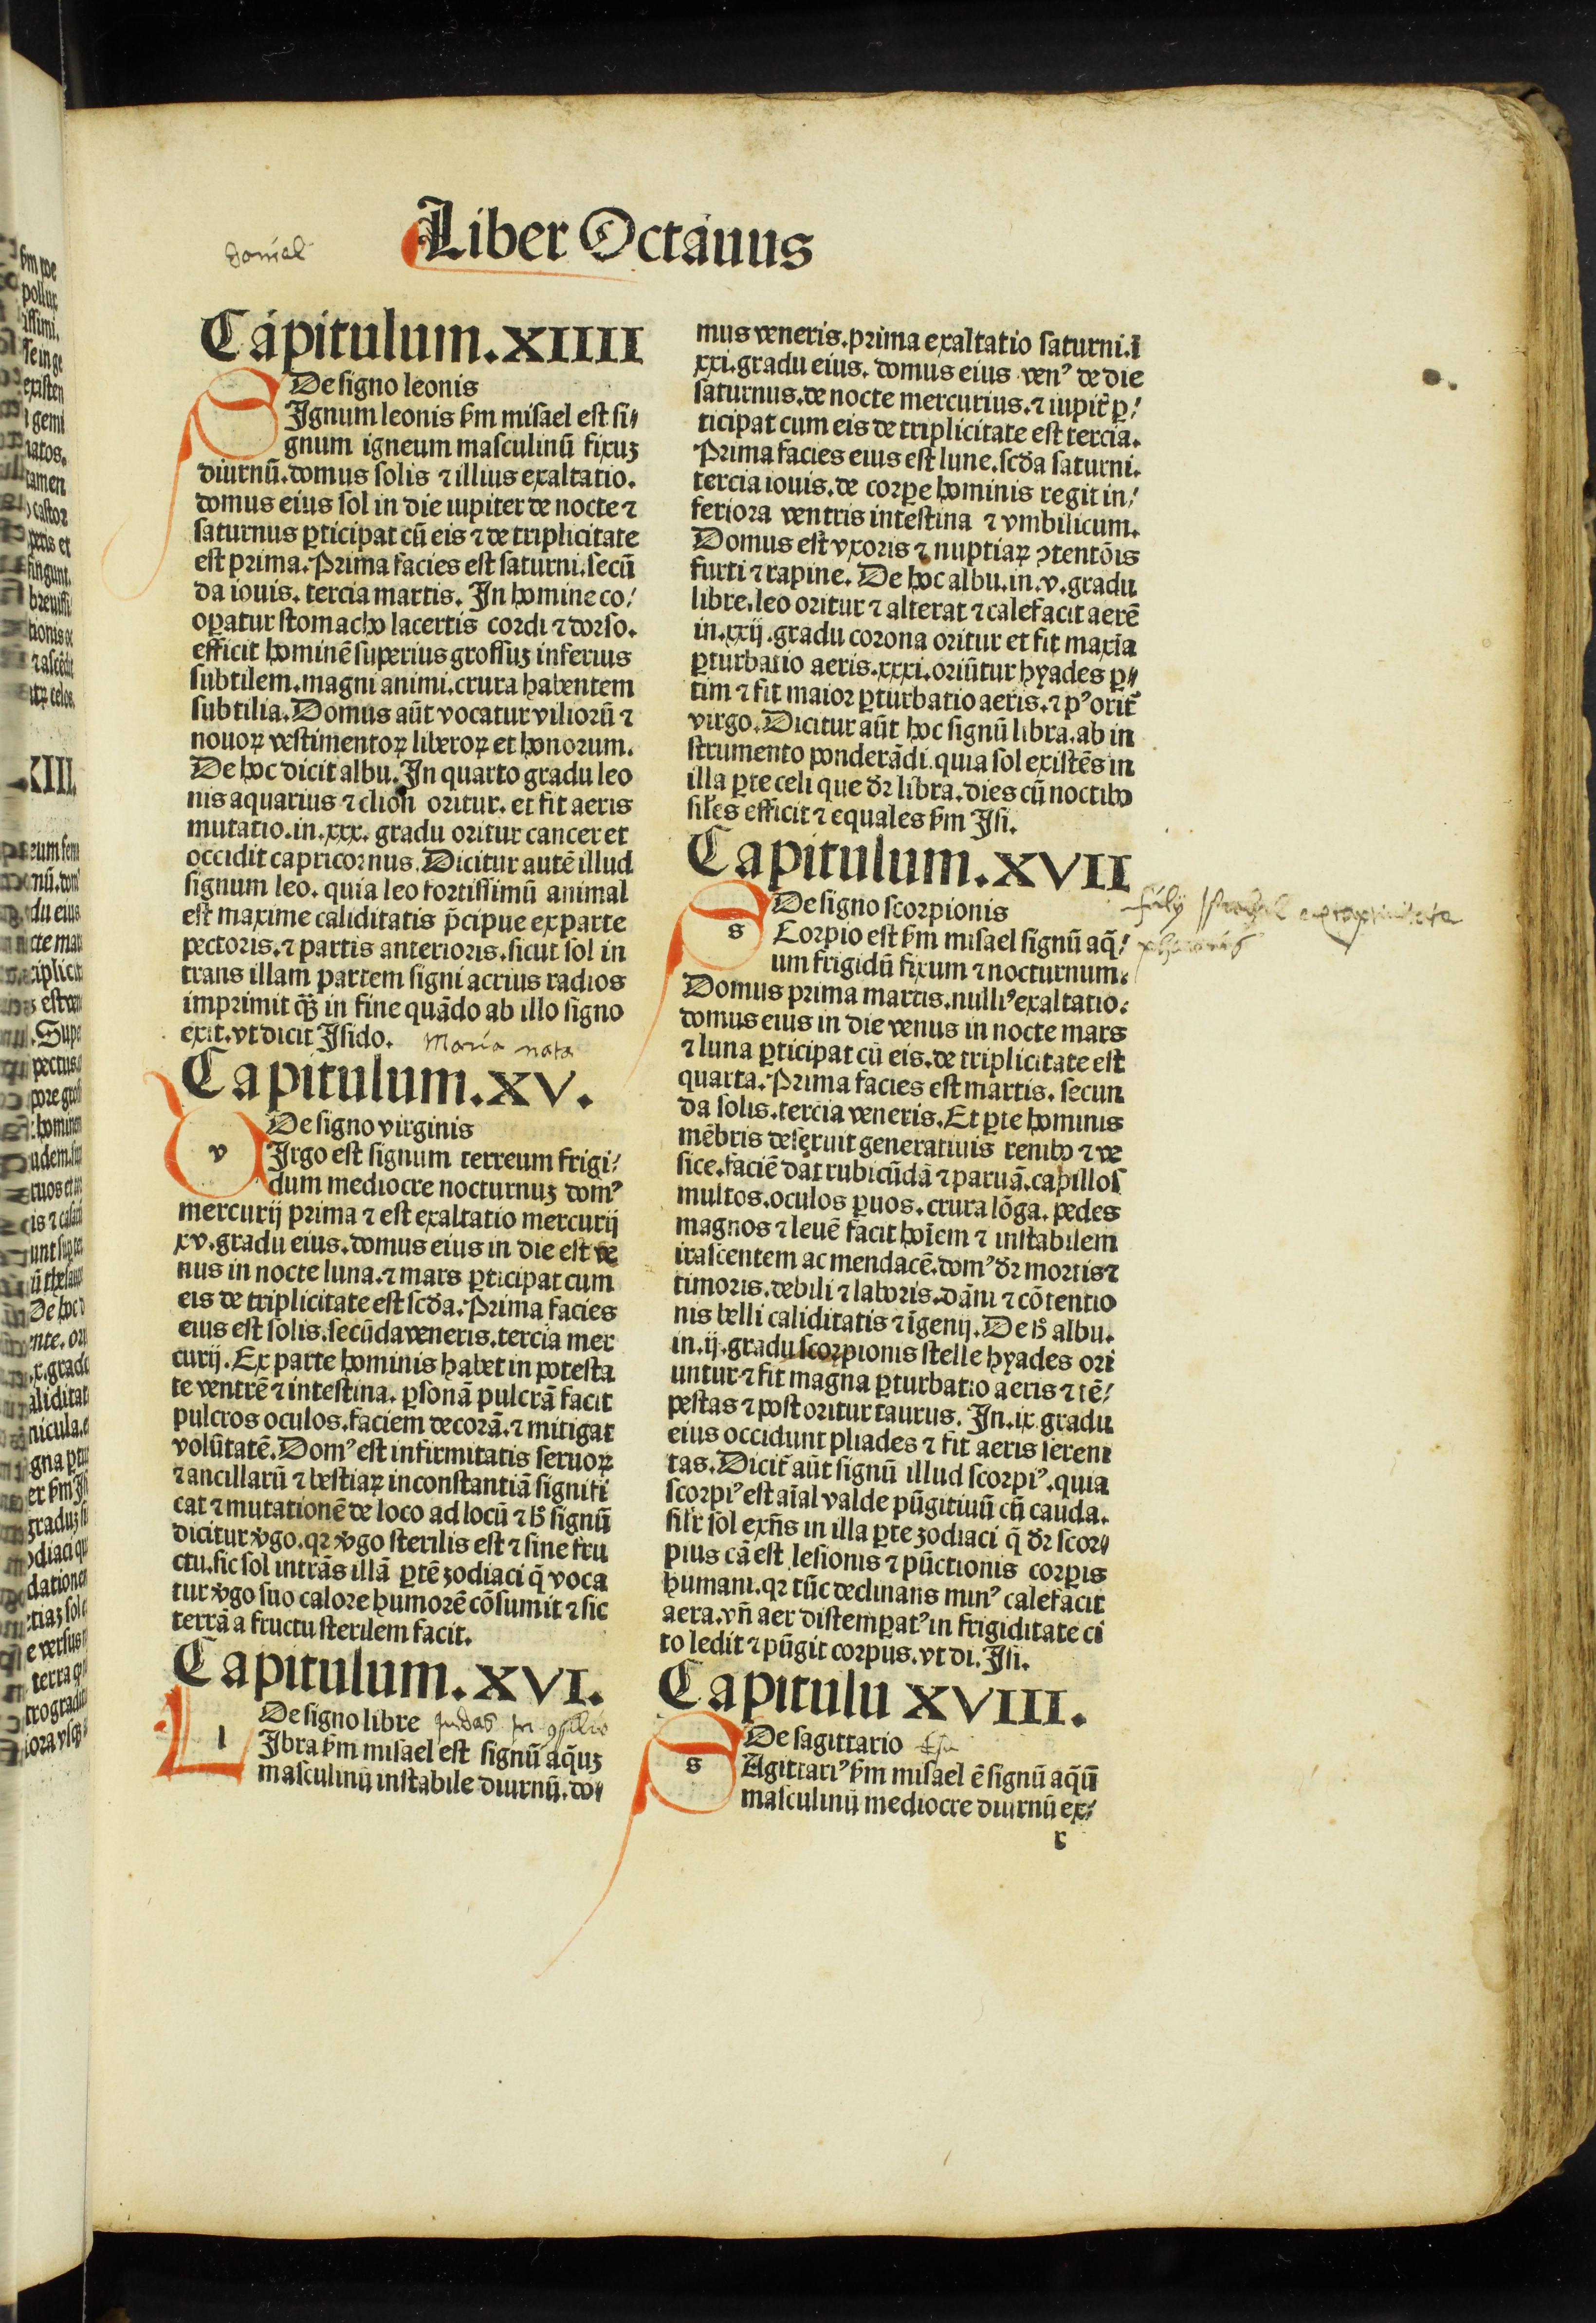 Daniel
Liber Octauus
Capitulum.XIIII
De signo leonis
SIgnum leonis ẜm misael est si⸗
gnum igneum masculinū fixuꝫ
diurnū.domus solis ⁊ illius exaltatio.
domus eius sol in die iupiter de nocte ⁊
saturnus ꝑticipat cū eis ⁊ de triplicitate
est prima.Prima facies est saturni.secū
da iouis.tercia martis. In homine co⸗
oꝑatur stomacho lacertis cordi ⁊ dorso.
efficit hominē superius grossuꝫ inferius
subtilem.magni animi.crura habentem
subtilia.Domus aūt vocatur viliorū ⁊
nouoꝝ vestimentoꝝ liberoꝝ et honorum.
De hoc dicit albu.In quarto gradu leo
nis aquarius ⁊ clion oritur. et fit aeris
mutatio.in.xxx. gradu oritur cancer et
occidit capricornus.Dicitur autē illud
signum leo. quia leo fortissimū animal
est maxime caliditatis p̄cipue ex parte
pectoris.⁊ partis anterioris.sicut sol in
trans illam partem signi acrius radios
imprimit q̄ꝫ in fine quādo ab illo signo
exit.vt dicit Isido. Maria nata
Capitulum.XV.
De signo virginis
v
VIrgo est signum terreum frigi⸗
dum mediocre nocturnuꝫ domꝰ
mercurij prima ⁊ est exaltatio mercurij
xv.gradu eius.domus eius in die est ve
nus in nocte luna.⁊ mars ꝑticipat cum
eis de triplicitate est scd̄a.Prima facies
eius est solis.secūda veneris.tercia mer
curij.Ex parte hominis habet in potesta
te ventrē ⁊ intestina. ꝑsonā pulcrā facit
pulcros oculos.faciem decorā.⁊ mitigat
volūtatē.Domꝰ est infirmitatis seruoꝝ
⁊ ancillarū ⁊ bestiaꝝ inconstantiā signifi
cat ⁊ mutationē de loco ad locū ⁊ h̄ signū
dicitur v̄go.qꝛ v̄go sterilis est ⁊ sine fru
ctu.sic sol intrās illā ꝑtē zodiaci q̄ voca
tur v̄go suo calore humorē cōsumit ⁊ sic
terrā a fructu sterilem facit.
Capitulum.XVI.
De signo libre Judas
l
LIbra ẜm misael est signū aq̄uꝫ
masculinū instabile diurnū.do⸗
mus veneris.prima exaltatio saturni.ī
xxi.gradu eius. domus eius venꝰ de die
saturnus.de nocte mercurius.⁊ iupit̄ ꝑ⸗
ticipat cum eis de triplicitate est tercia.
Prima facies eius est lune.scd̄a saturni.
tercia iouis.de corꝑe hominis regit in⸗
feriora ventris intestina ⁊ vmbilicum.
Domus est vxoris ⁊ nuptiaꝝ ꝯtentōis
furti ⁊ rapine. De hoc albu.in.v.gradu
libre.leo oritur ⁊ alterat ⁊ calefacit aerē
in.xxij.gradu corona oritur et fit maxīa
ꝑturbatio aeris.xxxi.oriūtur hyades ꝑ⸗
tim ⁊ fit maior ꝑturbatio aeris.⁊ pꝰ orit̄
virgo.Dicitur aūt hoc signū libra.ab in
strumento ponderādi.quia sol existēs in
illa ꝑte celi que dr̄ libra.dies cū noctibꝰ
sil̄es efficit ⁊ equales ẜm Isi.
Capitulum.XVII
De signo scorpionis
s
SCorpio est ẜm misael signū aq̄⸗
um frigidū fixum ⁊ nocturnum.
Domus prima martis.nulliꝰ exaltatio.
domus eius in die venus in nocte mars
⁊ luna ꝑticipat cū eis.de triplicitate est
quarta.Prima facies est martis. secun
da solis.tercia veneris.Et ꝑte hominis
mēbris deseruit generatiuis renibꝰ ⁊ ve
sice.faciē dat rubicūdā ⁊ paruā.capillos
multos.oculos ꝑuos.crura lōga. pedes
magnos ⁊ leuē facit hoīem ⁊ instabilem
irascentem ac mendacē.domꝰ dr̄ mortis ⁊
timoris.debili ⁊ laboris.dāni ⁊ cōtentio
nis belli caliditatis ⁊ īgenij.De h̄ albu.
in.ij.gradu scorpionis stelle hyades ori
untur ⁊ fit magna ꝑturbatio aeris ⁊ tē⸗
pestas ⁊ post oritur taurus. In.ix.gradu
eius occidunt pliades ⁊ fit aeris sereni
tas.Dicit̄ aūt signū illud scorpiꝰ.quia
scorpiꝰ est aīal valde pūgitiuū cū cauda.
sil̄r sol exn̄s in illa ꝑte zodiaci q̄ dr̄ scor⸗
pius cā est lesionis ⁊ pūctionis corꝑis
humani.qꝛ tūc declinans minꝰ calefacit
aera.vn̄ aer distemꝑatꝰ in frigiditate ci
to ledit ⁊ pūgit corpus.vt di.Isi.
Capitulū XVIII.
De sagittario
s
SAgittariꝰ ẜm misael ē signū aq̄ū
masculinū mediocre diurnū ex⸗
r